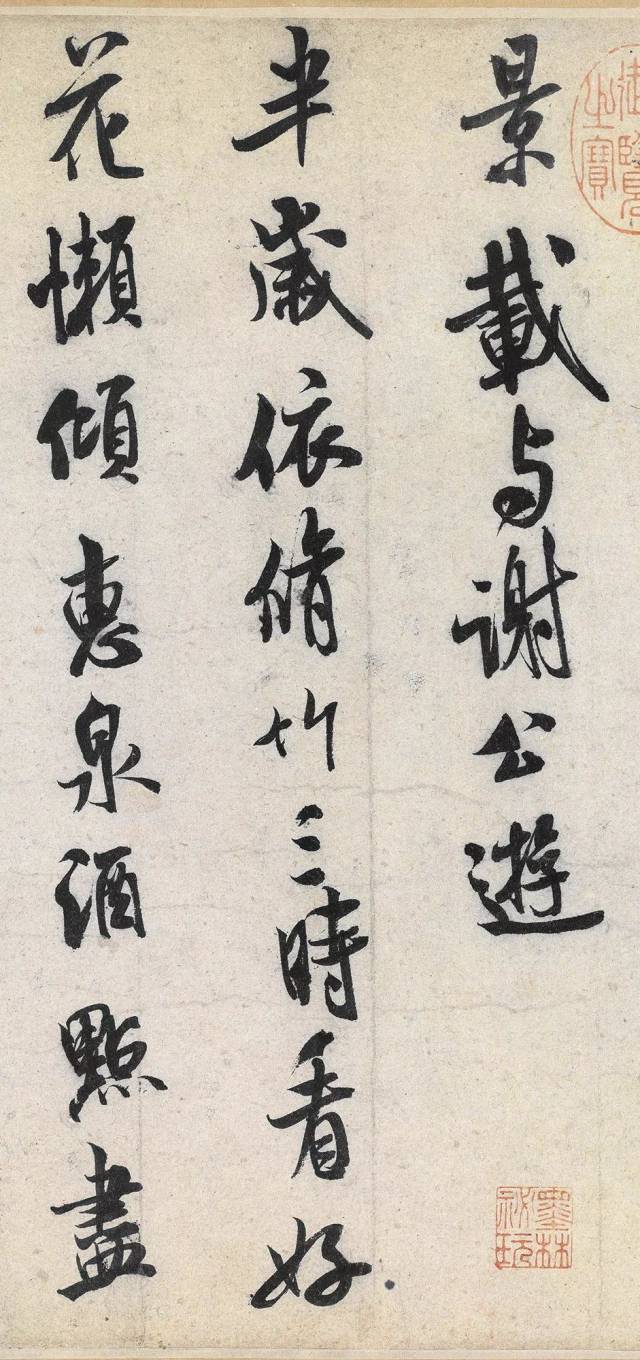 景載与謝公遊
半歲依脩竹三時看好
花懶傾惠泉酒點盡
墨林祕玩